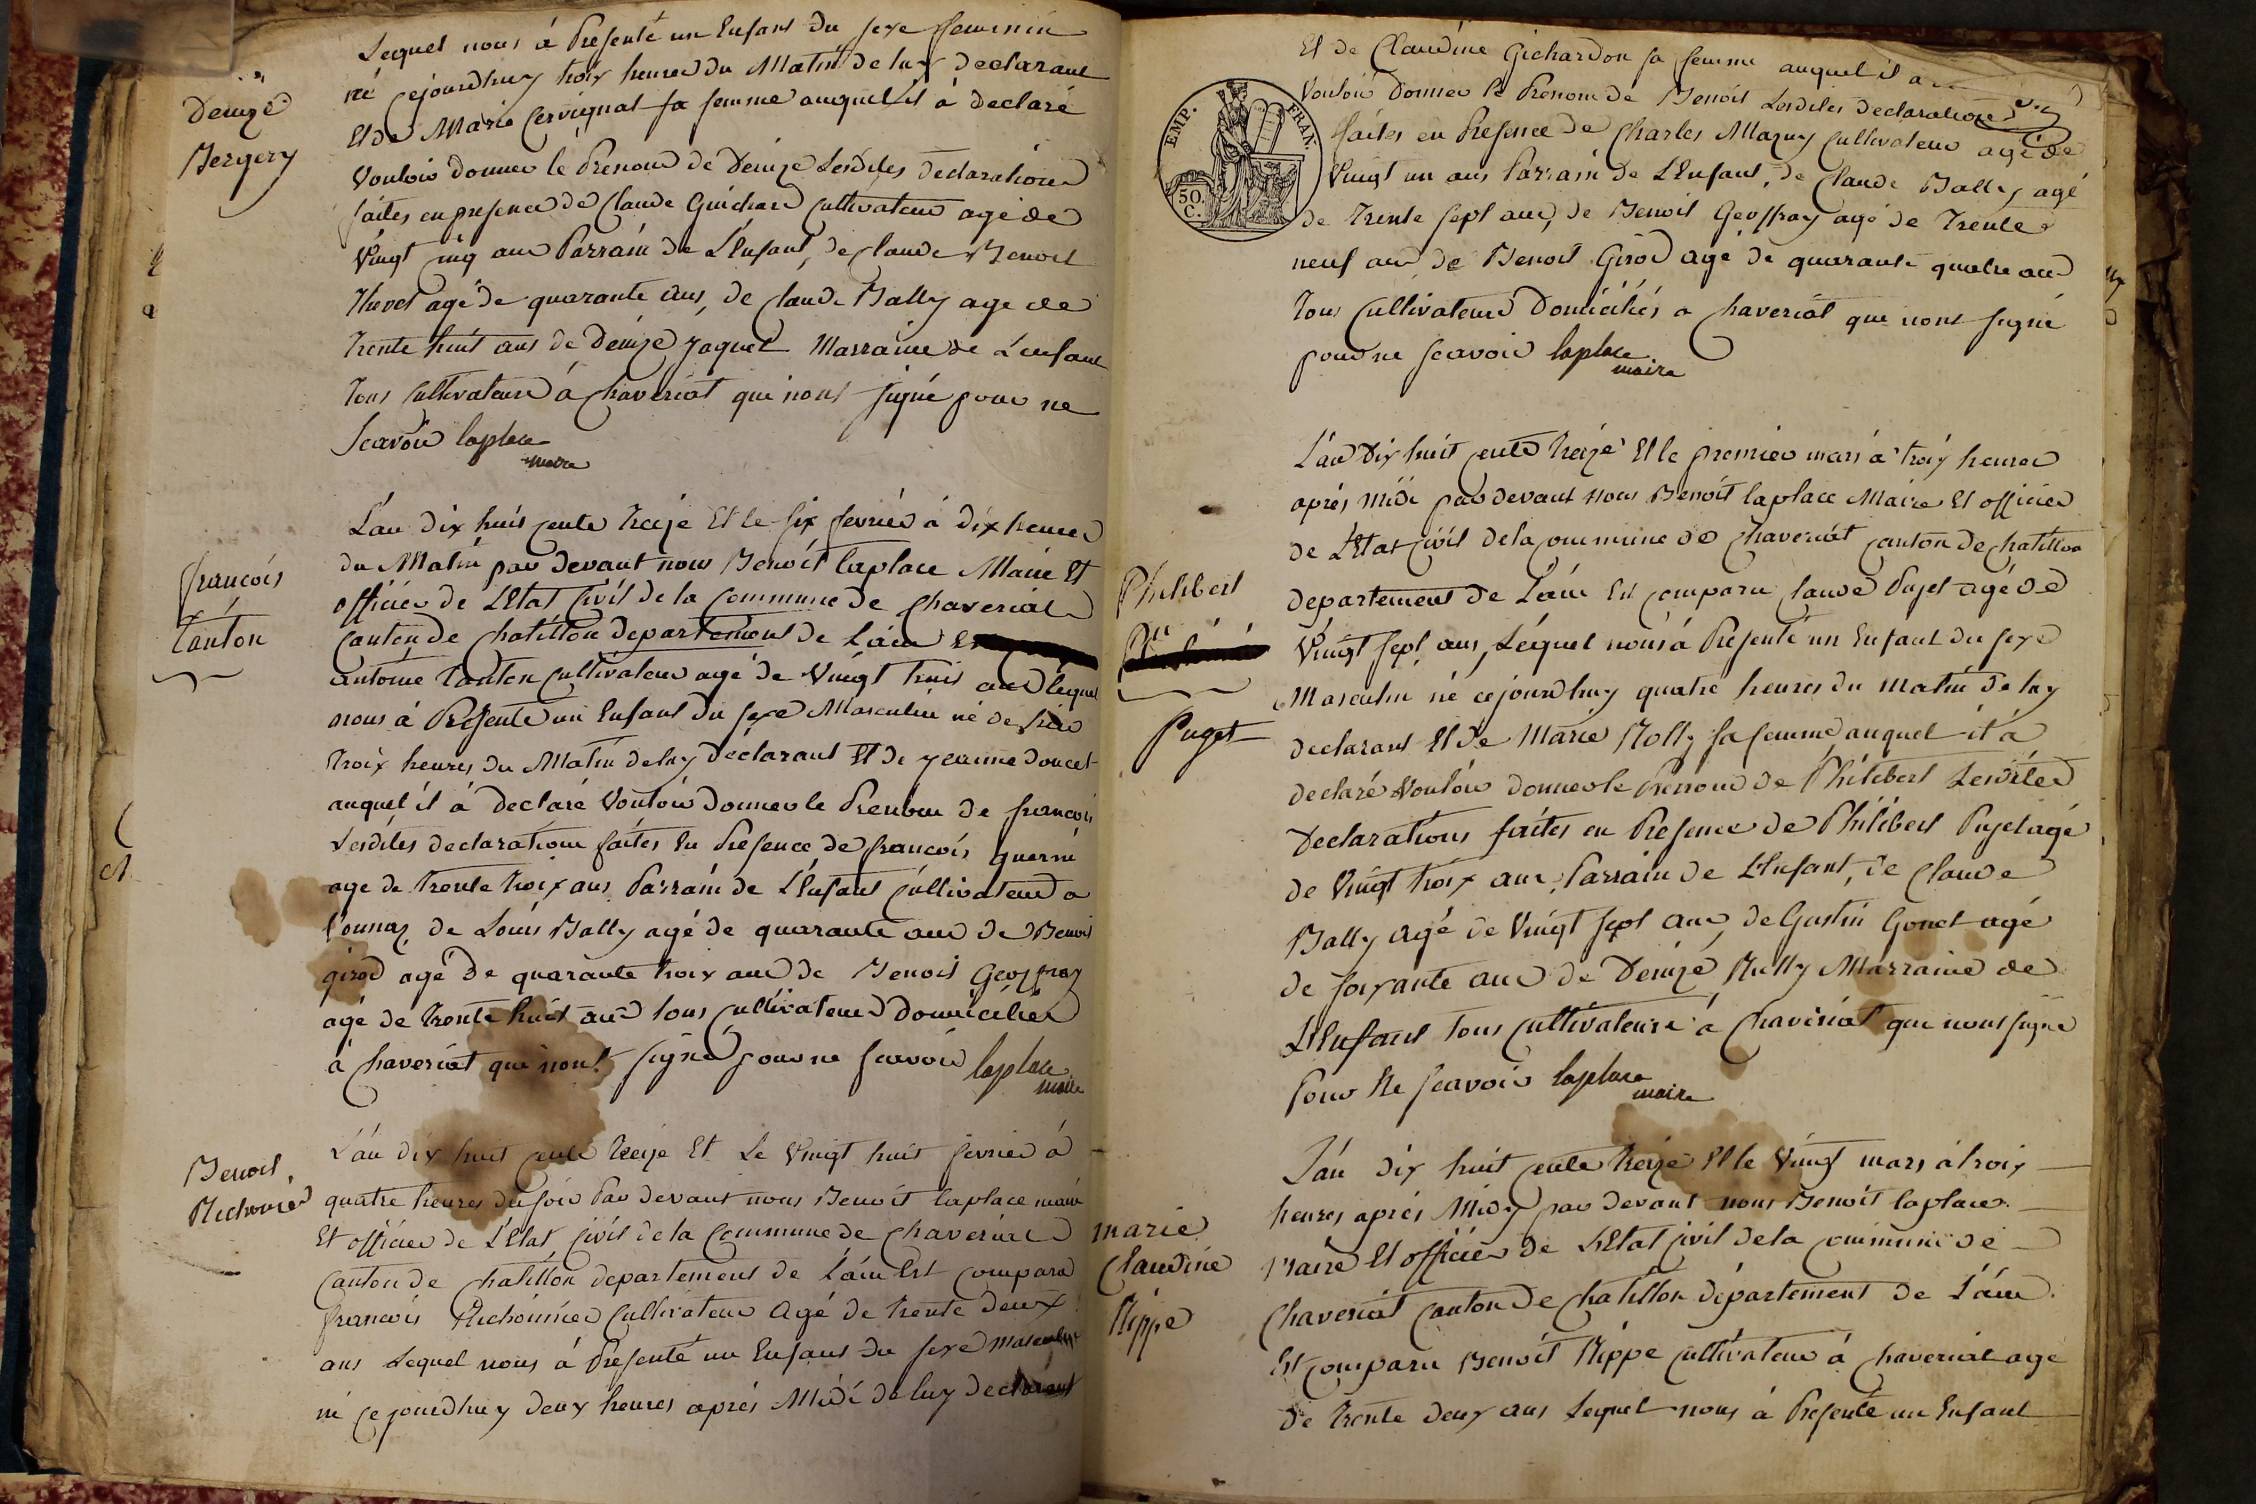 Lequel nous à Présenté un Enfant du sexe feminin
né cejourdhuy troix heures du Matin de luy declarant
Et de Marie Cervignat sa femme auquel il à declaré
Vouloir donner le Prenom de Denize Lesdites declarations
faites en presence de Claude Guichard Cultivateur agé de
Vingt cinq ans Parrain de L'Enfant, de Claude Benoit
Thevet agé de quarante ans, de Claude Bally agé de
Trente huit ans de Denize Jaquet Marraine de L'enfant
Tous Cultivateurs à Chaveriat qui n'ont signé pour ne
Scavoir laplace
maire
Denize
Bergery
L'an dix huit cents treize Et le six fevrier à dix heures
du Matin par devant nous Benoit laplace Maire Et
officier de L'Etat Civil de la Commune de Chaveriat
Canton de Chatillon departement de L'ain
antoine Tanton Cultivateur agé de Vingt huit ans lequel
nous à Présenté un Enfant du sexe Masculin né de hier
Troix heures du Matin de luy declarant Et de jeanne doucet
auquel il à declaré Vouloir donner le Prenom de francois
Lesdites declarations faites En Présence de francois
agé de trente troix ans Parrain de L'Enfant Cultivateur a
Lonnaz, de Louis Bally agé de quarante ans de Benoit
girod agé de quarante troix ans de Benoit Geoffray
agé de trente huit ans tous Cultivateurs domiciliés
à Chaveriat qui n'ont signé pour ne scavoir laplace
maire
francois
Tanton
L'an dix huit cents treize Et Le Vingt huit fevrier à
quatre heures du soir Par devant nous Benoit laplace maire
Et officier de L'Etat Civil de la Commune de Chaveriat
Canton de Chatillon departement de L'ain Est comparu
francois Cultivateur Agé de trente deux
ans Lequel nous à Présenté un Enfant du sexe masculin
né cejourdhuy deux heures aprés Midi de luy declarant
Benoit
Et de Claudine Gichardon sa femme auquel il a
Vouloir donner le Prenom de Benoit Lesdites declarations
faites en Presence de Charles Mazuy Cultivateur agé de
Vingt un ans Parrain de L'Enfant, de Claude Bally agé
de Trente sept ans, de Benoit Geoffray agé de Trente
neuf ans de Benoit Girod agé de quarante quatre ans
Tous Cultivateurs Domiciliés a Chaveriat qui n'ont signé
pour ne scavoir laplace
maire
EMP. FRAN.
50.
C.
L'an Dix huit cents treize Et le premier mars à troix heures
aprés midi par devant nous Benoit laplace Maire Et officier
de L'Etat Civil de la Commune de Chaveriat Canton de Chatillon
departement de L'ain Est comparu Claude Pujet agé de
Vingt sept ans, Lequel nous à Présenté un Enfant du sexe
Masculin né cejourdhuy quatre heures du matin de luy
declarant Et de Marie Rolly sa femme auquel il à
declaré Vouloir donner le Prenom de Philibert Lesdites
Declarations faites en Presence de Philibert Pujet agé
de Vingt troix ans, Parrain de L'Enfant, de Claude
Bally agé de Vingt sept ans, de Gustin Gonet agé
de soixante ans de Denize Marraine de
L'Enfant tous Cultivateurs à Chaveriat qui n'ont signé
Pour Ne scavoir laplace
maire
Philibert
Puget
L'an dix huit cents treize Et le Vingt mars à troix
heures aprés Midy par devant nous Benoit laplace
Maire Et officier de L'Etat Civil de la Commune de
Chaveriat Canton de Chatillon département de L'ain
Est comparu Benoit Rippe Cultivateur à Chaveriat agé
de trente deux ans Lequel nous à Présenté un Enfant
marie
Claudine
Rippe